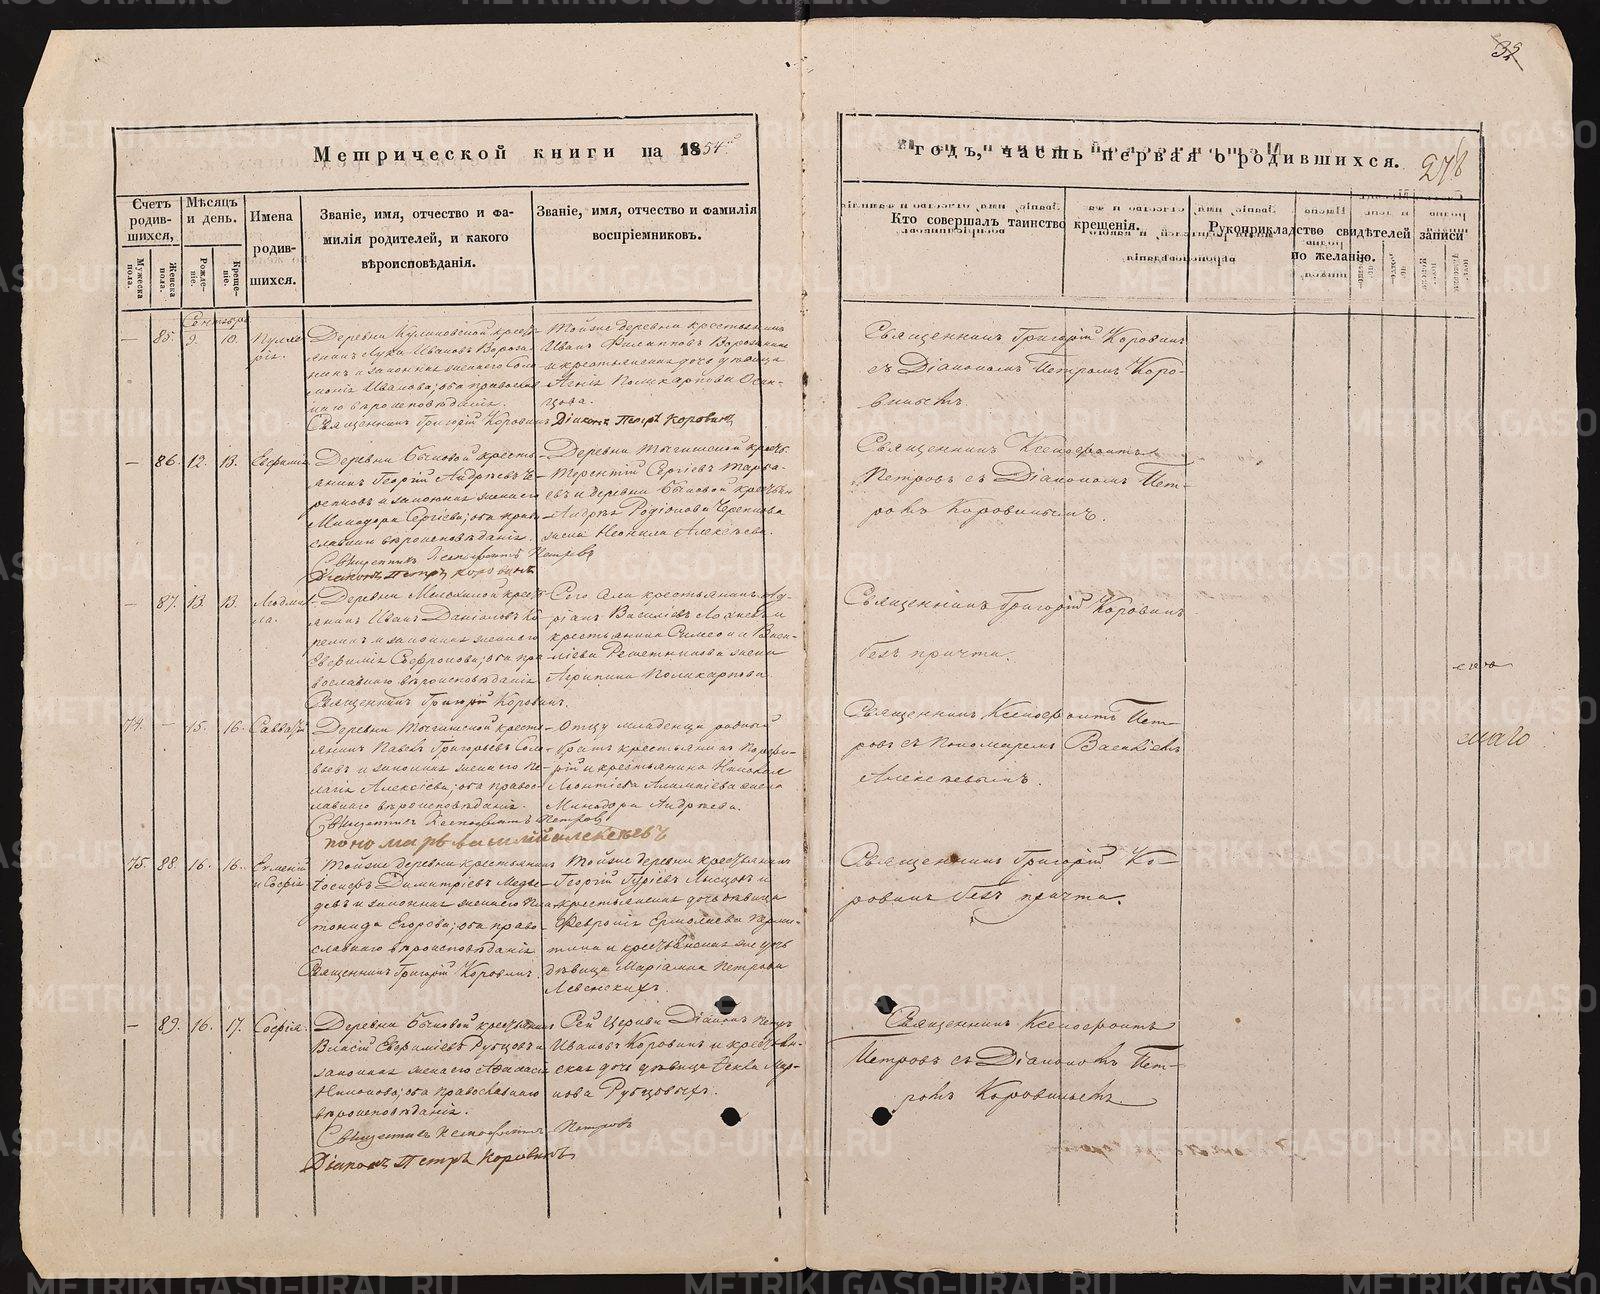 Метрической книги на 1854й
годъ, часть первая о родившихся.
278
Счетъ родив-шихся,
Мѣсяцъ и день.
Имена родив-шихся.
Званіе, имя, отчество и фа-
милія родителей, и какого
вѣроисповѣданія.
Званіе, имя, отчество и фамилія
воспріемниковъ.
Кто совершалъ таинство крещенія.
Рукоприкладство свидѣтелей записи
по желанію.
Мужеска пола.
Женска пола.
Рожде-ніе.
Креще-ніе.
Сентября
— 85. 9. 10. Пулхе-
рія.
Деревни Куликовской кресть-
янинъ Лука Ивановъ
и законная жена его Соло-
монія Иванова; оба православ-
наго вѣроисповѣданія.
Священникъ Григорій Коровинъ
Тойже деревни крестьянинъ
Иванъ Филипповъ
и крестьянская дочь дѣвица
Поликарпова Осин-
цова.
Діаконъ Петръ Коровинъ
Священникъ Григорій Коровинъ
съ Діакономъ Петромъ Коро-
винымъ.
— 86. 12. 13. Евфимія
Деревни Быковой кресть-
янинъ Георгій Андреевъ Че-
репновъ и законная жена его
Минодора Сергіева; оба право-
славнаго вѣроисповѣданія.
Священникъ Ксенофонтъ Петровъ
Діаконъ Петръ Коровинъ
Деревни Тыгишской крест.
Терентій Сергіевъ
и деревни Быковой крестьян.
Андрея Родіонова Черепнова
жена Неонила Алексѣева.
Священникъ Ксенофонтъ
Петровъ съ Діакономъ Пет-
ромъ Коровинымъ.
— 87. 13. 13. Людмил-
ла.
Деревни Мелехиной крест-
янинъ Иванъ Даніиловъ Ко-
пелинъ и законная жена его
Евфимія Софронова; оба пра-
вославнаго вѣроисповѣданія
Священникъ Григорій Коровинъ.
Сего села крестьянинъ Ад-
ріанъ Васильевъ и
крестьянина Симеона Васи-
лієва Решетникова жена
Агрипина Поликарпова.
Священникъ Григорій Коровинъ
безъ причта.
74. — 15. 16. Савватій
Деревни Тыгишской кресть-
янинъ Павелъ Григорьевъ Соло-
вьевъ и законная жена его Пе-
лагія Алексіева; оба право-
славнаго вѣроисповѣданія.
Священникъ Ксенофонтъ Петровъ
Пономарь Василій Алексѣевъ
Отцу младенца родный
братъ крестьянинъ Порфи-
рій и крестьянина Николая
Леонтіева жена
Минодора Андреева.
Священникъ Ксенофонтъ Пет-
ровъ съ Пономаремъ Василіемъ
Алексѣевымъ.
75. 88. 16. 16. Евменій
и Софія
Тойже деревни крестьянинъ
Іосифъ Димитріевъ Медве-
девъ и законная жена его Пла-
тонида Егорова; оба право-
славнаго вѣроисповѣданія
Священникъ Григорій Коровинъ.
Тойже деревни крестьянинъ
Георгій Гуріевъ и
крестьянская дочь дѣвица
Февронія Ермолаева
и крестьянская же дочь
дѣвица Маріамна Петрова
Левенскихъ.
Священникъ Григорій Ко-
ровинъ безъ причта.
— 89. 16. 17. Софія.
Деревни Быковой крестьянинъ
Власій Евфиміевъ Рубцовъ и
законная жена его Афанасія
Никонова; оба православнаго
вѣроисповѣданія.
Священникъ Ксенофонтъ Петровъ
Діаконъ Петръ Коровинъ
Сей Церкви Діаконъ Петръ
Ивановъ Коровинъ и крестьян-
ская дочь дѣвица Ѳекла Мар-
кова Рубцовыхъ.
Священникъ Ксенофонтъ
Петровъ съ Діакономъ Пет-
ромъ Коровинымъ.
METRIKI.GASO-URAL.RU